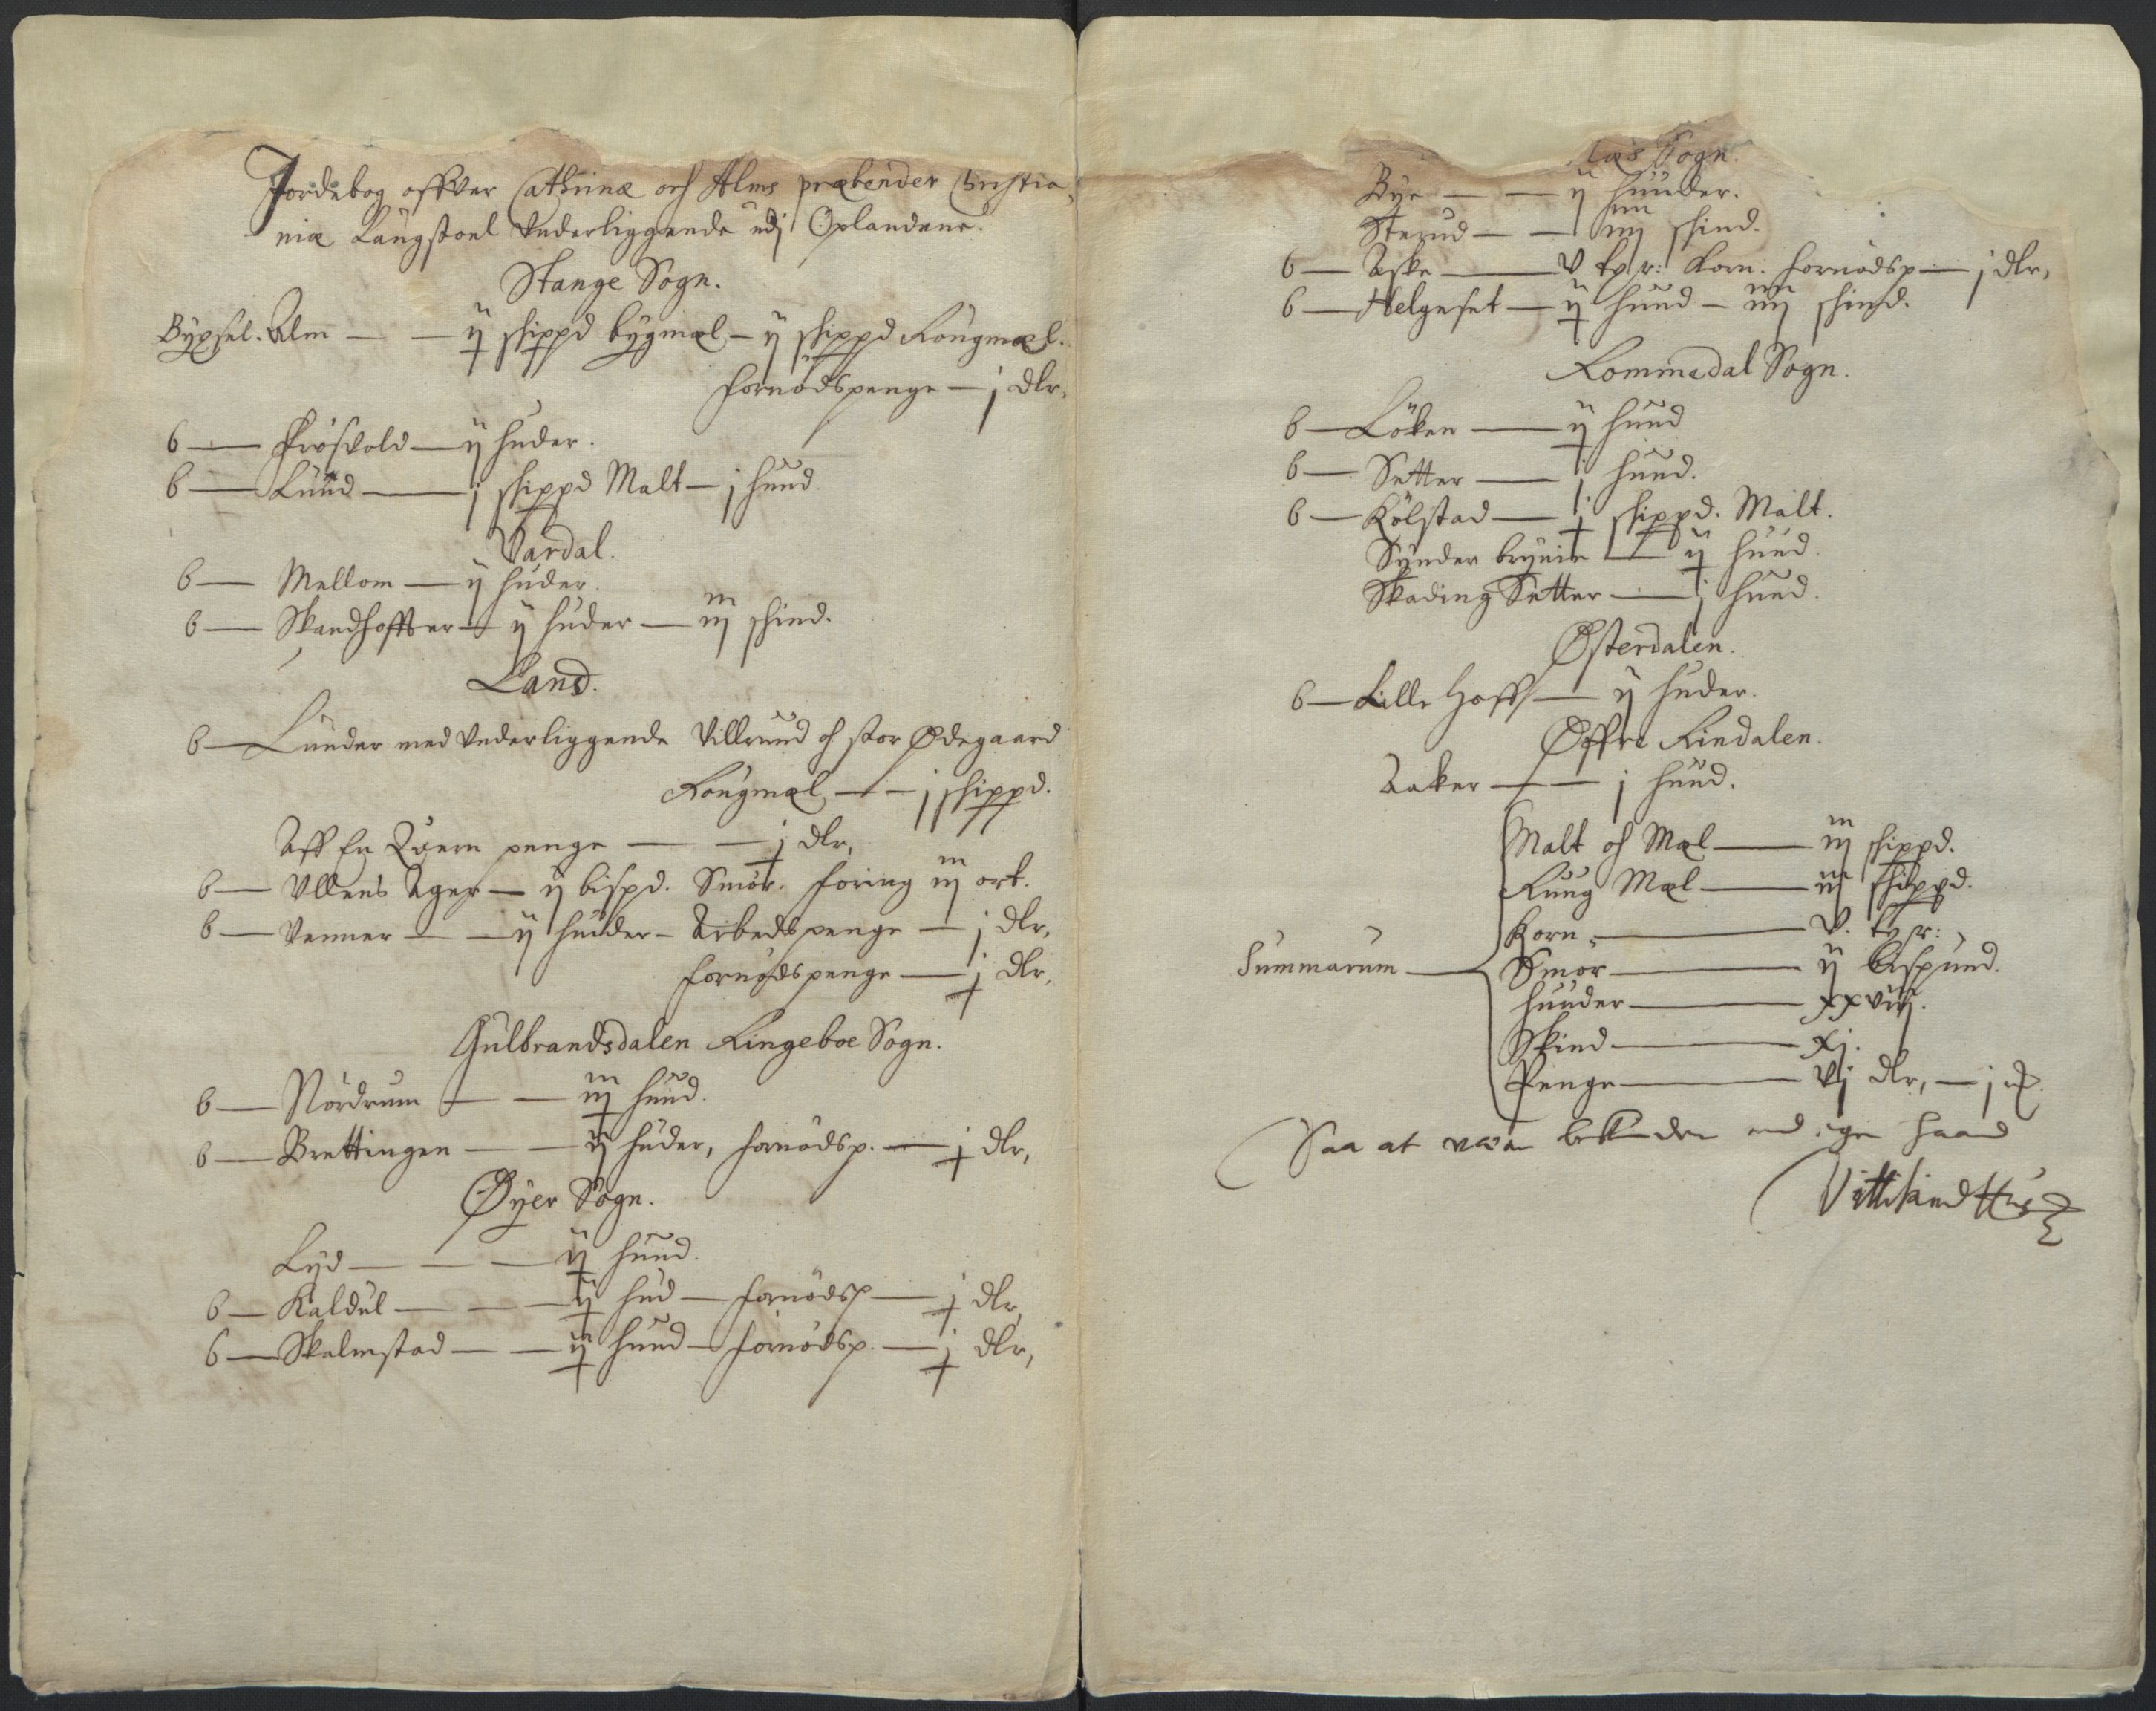 Jordebog offver Cathrinæ och Alms præbender Christia-
niæ Laugstoel Underliggende udj Oplandene.
Stange Sogn.
Bygsel. Alm — — ij skippd bygmæl — ij skippd Rougmæl.
fornødspenge — j dlr,
b — Frøsvold — ij huder.
b — Lund — j skippd Malt — j huud
Vardal.
b — Mellom — ij huder.
b — Skandhoffver — ij huder — iij skind.
Land.
b — Lunder med Underliggende Villruud oc stor Ødegaard
Rougmæl — — j skippd.
Aff En Quern penge — — j dlr,
b — Ullens Ager — ij bispd. Smør. foring iij ort.
b — Venner — — ij huuder — Arbedspenge — j dlr,
fornødspenge — j dlr,
Gulbrandsdalen Ringeboe Sogn.
b — Nordrum — — iij huud.
b — Brettingen — — ij huder, fornødsp. — j dlr,
Øyer Sogn.
Lyd — — — ij huud.
b — Kaldul — — — ij hud — fornødsp — j dlr,
b — Skalmstad — — ij huud — fornødsp. — j dlr,
Sogn.
Bye — — ij huuder.
Sterud — — iiij skind.
b — Aske — V tyr: Korn. fornødsp — j dlr,
b — Helgeset — ij huud — iiij skind.
Rommedal Sogn.
b — Løken — ij huud
b — Setter — j huud.
b — Kølstad — j skippd. Malt.
Synder brynie — ij huud.
Skading Setter — j huud.
Østerdalen.
b — Lille Hoff — ij huder.
Øffre Rindalen.
Aaker — — j huud.
Malt oc Mæl — iij skippd.
Ruug Mæl — iij skippd.
Korn — V. tyr:
Summarum — Smør — ij bispund.
huuder — xxviij.
Skind — xj.
Penge — Vj dlr, — j
Saa at være bekender med egen haand
Vittikind Hus